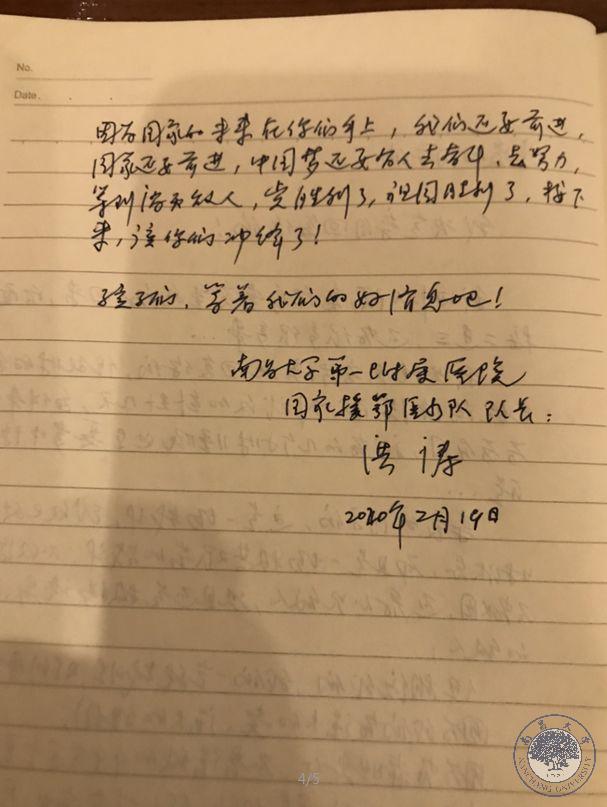 No.
Date.
因为国家的未来在你们手上，我们还要前进，
国家还要前进，中国梦还要有人去奋斗，去努力，
等到治愈病人，党胜利了，祖国胜利了，接下
来，该你们冲锋了！
孩子们，等着我们的好消息吧！
南昌大学第一附属医院
国家援鄂医疗队 队长：
洪涛
2020年2月19日
4/5
南昌大学
NANCHANG UNIVERSITY
1921